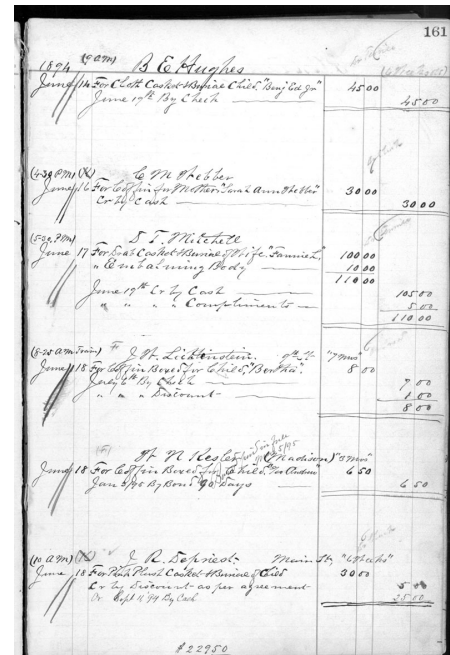 161
1894 (9 a.m.) B E Hughes
June 14 For Cloth Casket & Burial Child, "Benj Ed Jr" 45 00
June 19th By Check 45 00
(4-30 P.M.) (X) C M Webber
June 16 For Coffin for Mother "Sarah Ann Webber" 30 00
Cr by Cash 30 00
(5-30 P.M.) S. T. Mitchell
June 17 For Drab Casket & Burial of Wife, "Fannie L." 100 00
" Embalming Body 10 00
110 00
June 19th Cr by Cash 105 00
" " " " Compliments 5 00
110 00
(8-25 A.M. Train) J. W. Lichtenstein. 9th St. "7 Mos"
June 18 For Coffin Boxed for Child, "Bertha" 8 00
July 6th By Check 7 00
" " " Discount 1 00
8 00
W. N. Kesler (Madison) "3 Mos"
June 18 For Coffin Boxed for Child, 6 50
Jan 5/95 By Bond 90 Days 6 50
(10 A.M.) (X) J. R. Depriest. Main St, "6 Weeks"
June 18 For Pink Plush Casket & Burial of Child 30 00
Cr by Discount as per agreement 5 00
Cr Sept 11 '99 By Cash 25 00
$229 50